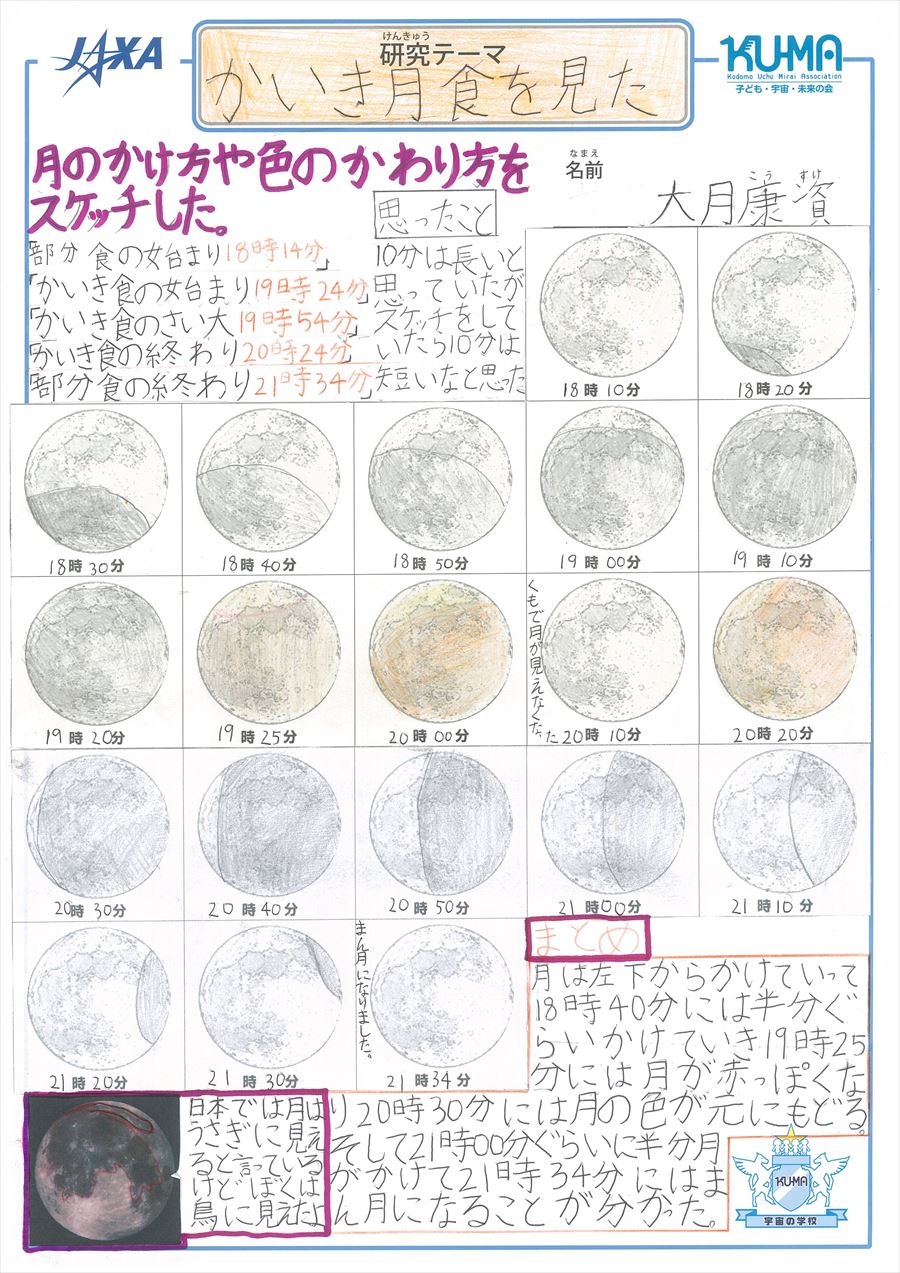 JAXA
けんきゅう
研究テーマ
かいき月食を見た
KUMA
Kodomo Uchu Mirai Association
子ども・宇宙・未来の会
月のかけ方や色のかわり方を
スケッチした。
なまえ
名前
こう すけ
大月康資
「部分食の始まり18時14分」
「かいき食の始まり19時24分」
「かいき食のさい大19時54分」
「かいき食の終わり20時24分」
「部分食の終わり21時34分」
思ったこと
10分は長いと
思っていたが
スケッチをして
いたら10分は
短いなと思った
18時10分
18時20分
18時30分
18時40分
18時50分
19時00分
19時10分
19時20分
19時25分
20時00分
くもで月が見えなくなった
20時10分
20時20分
20時30分
20時40分
20時50分
21時00分
21時10分
21時20分
21時30分
まん月になりました。
21時34分
まとめ
月は左下からかけていって
18時40分には半分ぐ
らいかけていき19時25
分には月が赤っぽくな
り20時30分には月の色が元にもどる。
そして21時00分ぐらいに半分月
がかけて21時34分にはま
ん月になることが分かった。
日本では月は
うさぎに見え
ると言っている
けどぼくは
鳥に見えたよ
KUMA
宇宙の学校